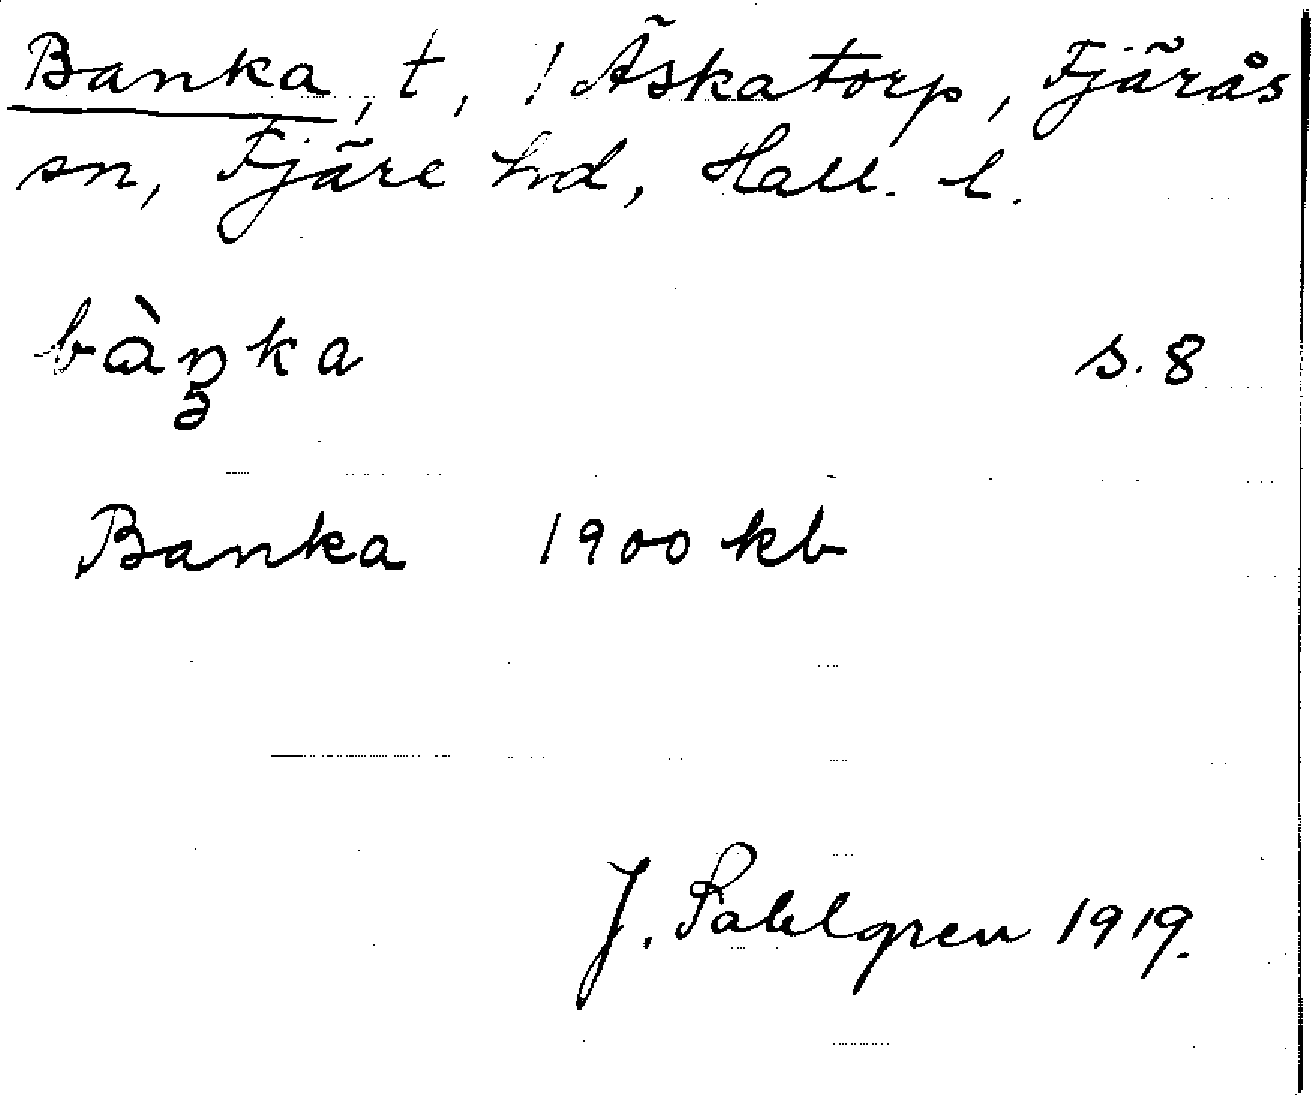 Banka, t, / Äskatorp, Fjärås
sn, Fjäre hd, Hall. l.
bàŋka s. 8
Banka 1900 kb
J. Sahlgren 1919.